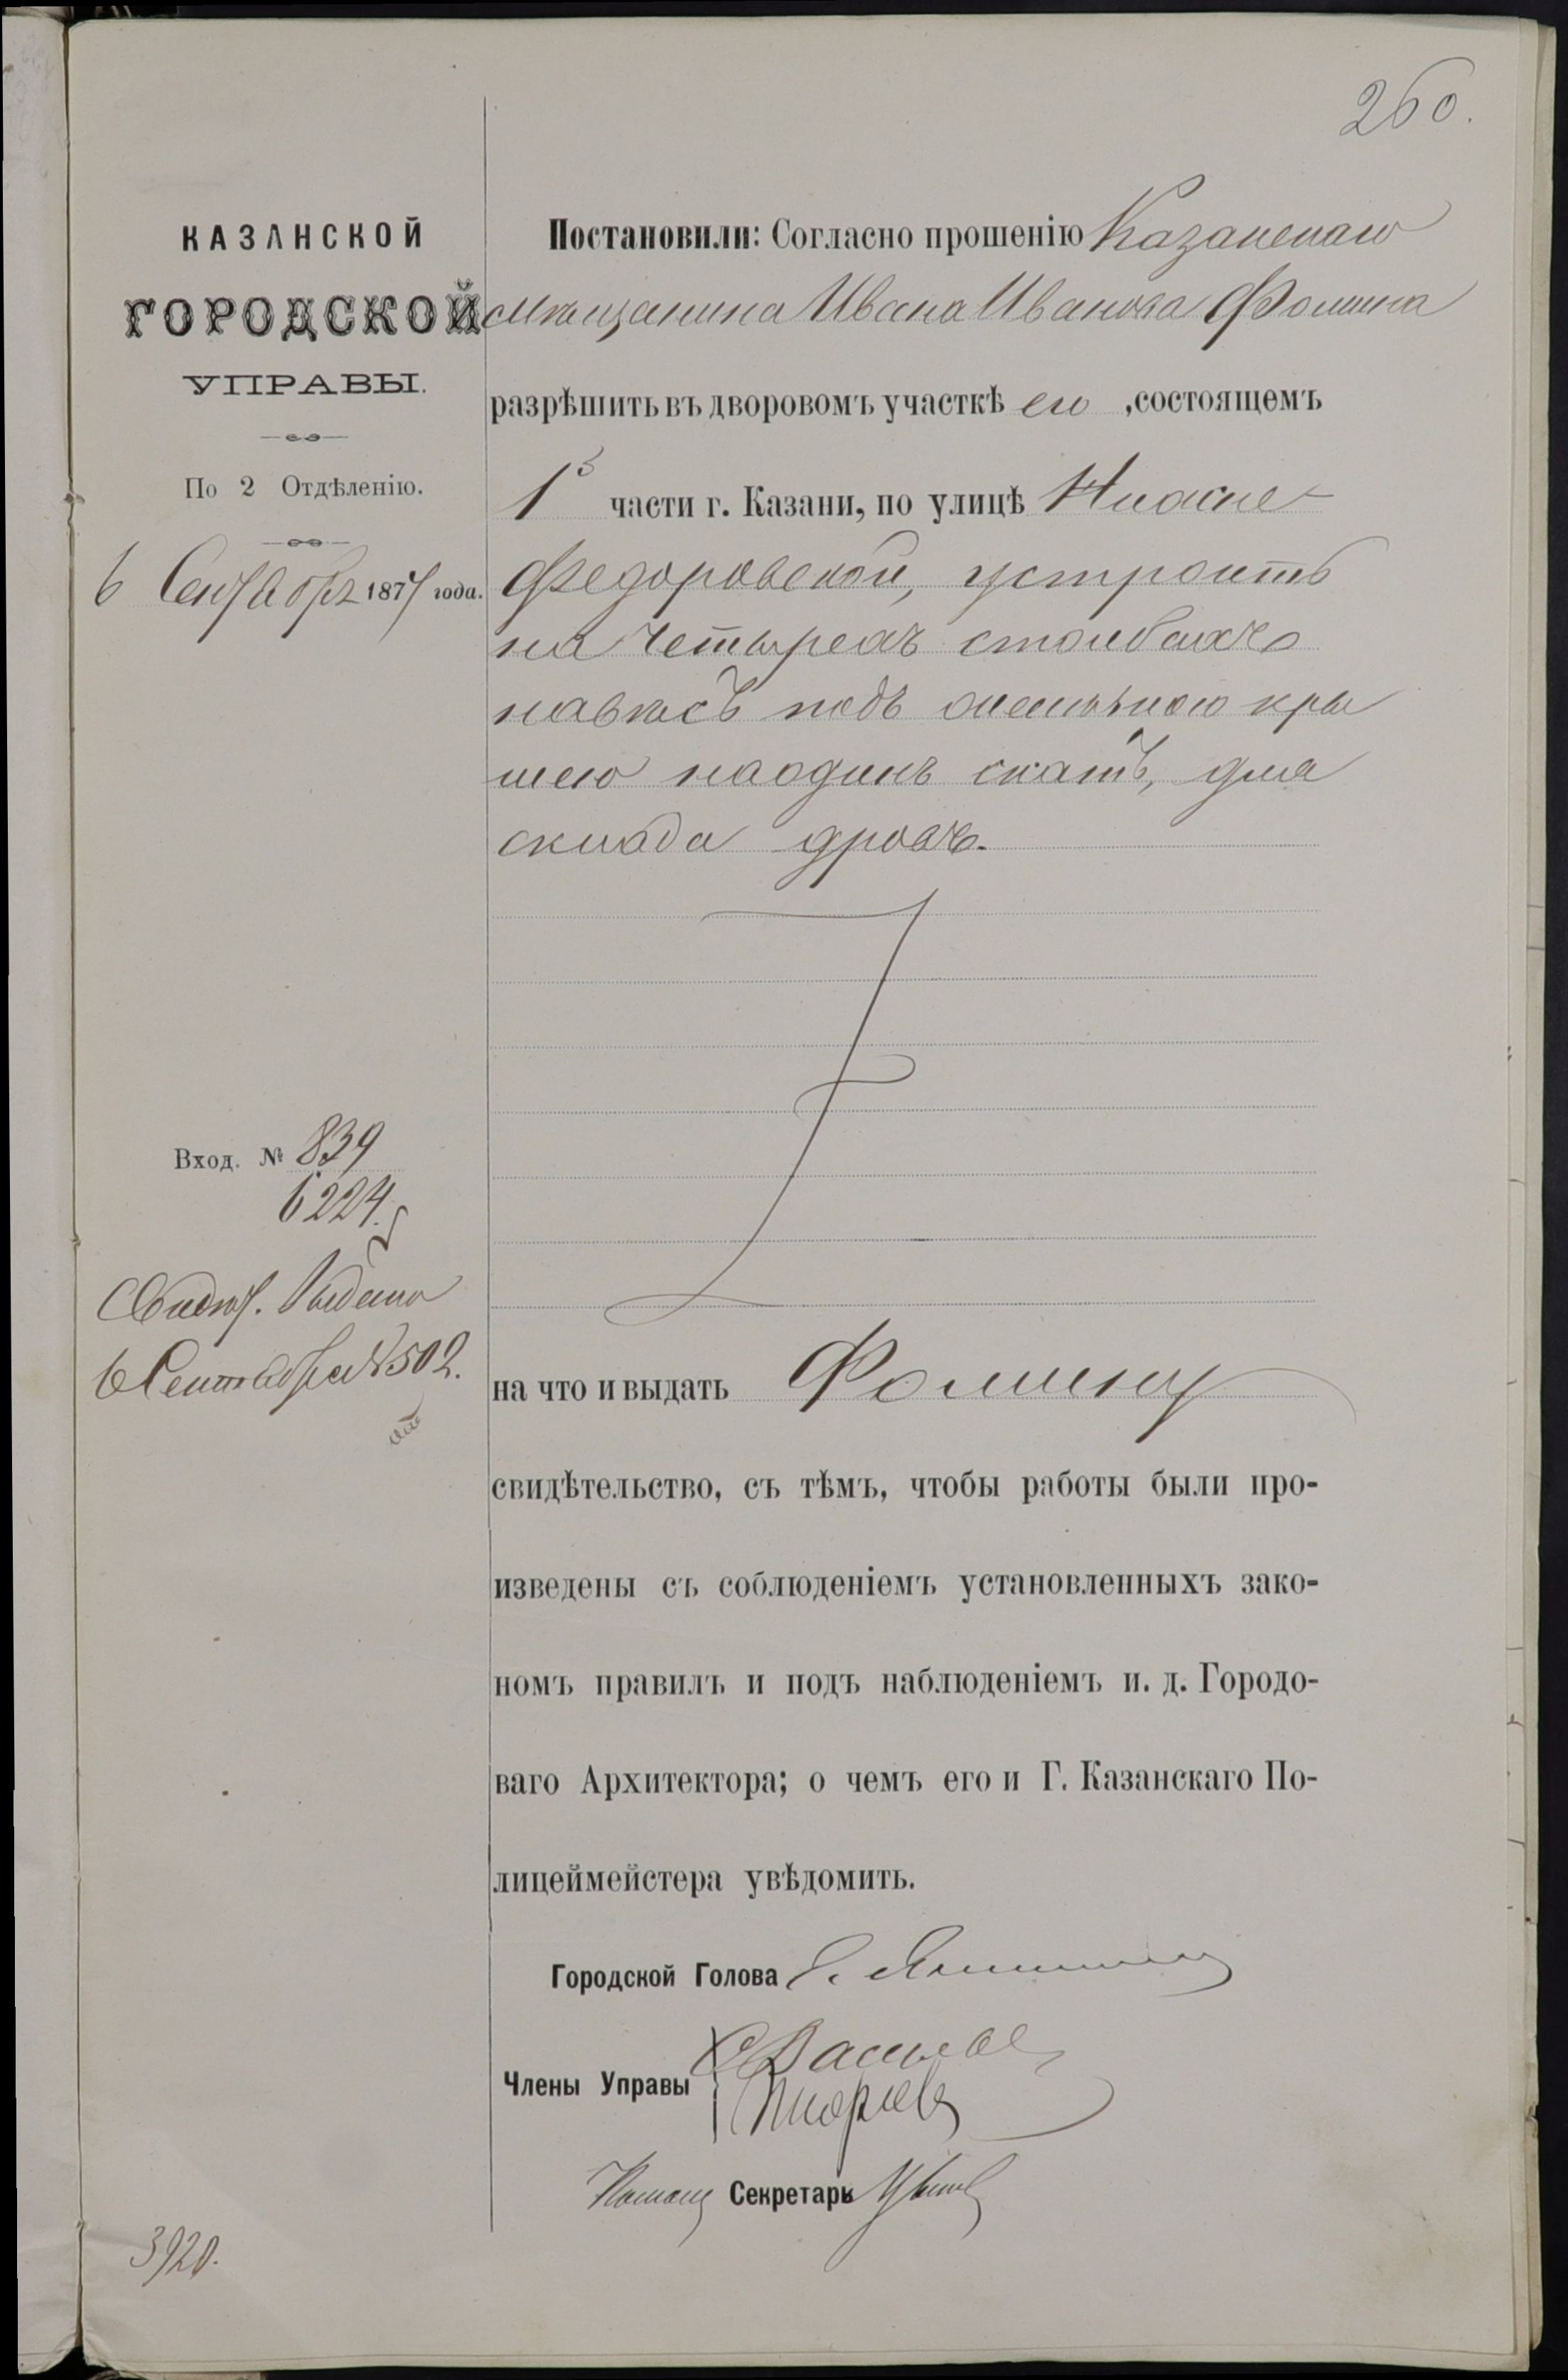 260.
КАЗАНСКОЙ
ГОРОДСКОЙ
УПРАВЫ.
По 2 Отдѣленію.
6 Сентября 1877 года.
Вход. № 839
6224.
Свидѣт. выдано
6 Сентября № 502.
3920.
Постановили: Согласно прошенію Казанскаго
мѣщанина Ивана Иванова Фомина
разрѣшить въ дворовомъ участкѣ его, состоящемъ
1й части г. Казани, по улицѣ Нижне-
Федоровской, устроить
на четырехъ столбахъ
навѣсъ подъ
шею на одинъ скатъ, для
склада дровъ.
на что и выдать Фомину
свидѣтельство, съ тѣмъ, чтобы работы были про-
изведены съ соблюденіемъ установленныхъ зако-
номъ правилъ и подъ наблюденіемъ и. д. Городо-
ваго Архитектора; о чемъ его и Г. Казанскаго По-
лицеймейстера увѣдомить.
Городской Голова Э. Янишевскій
Члены Управы
Секретарь